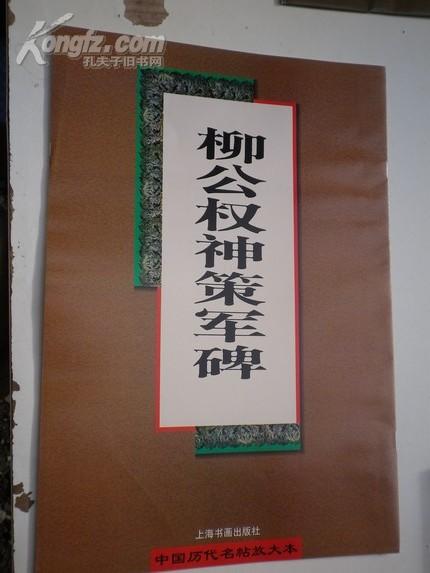 Kongfz.com
孔夫子旧书网
柳公权神策军碑
上海书画出版社
中国历代名帖放大本